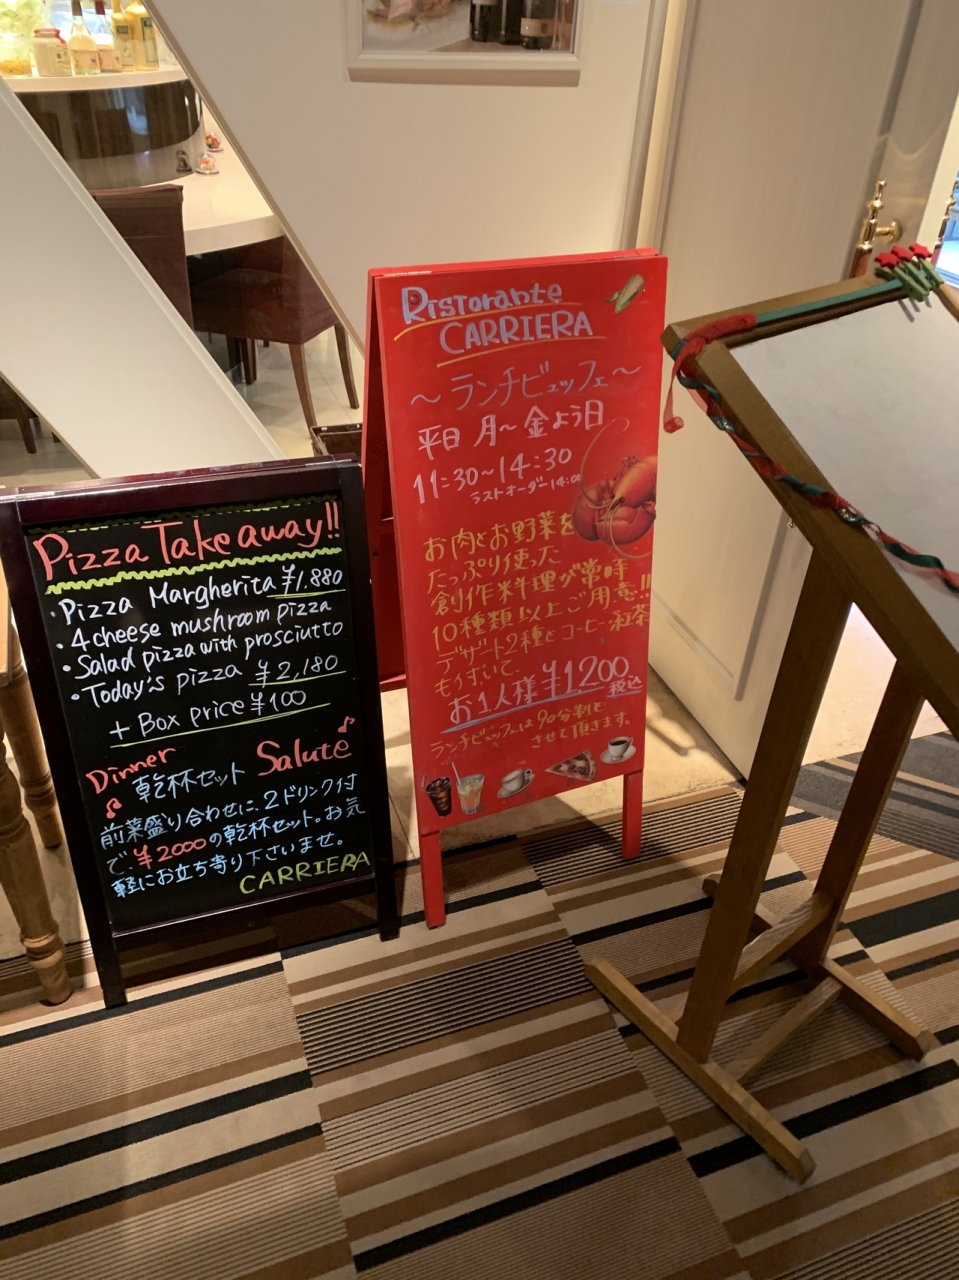 Pizza Take away!!
・Pizza Margherita ¥1.880
・4 cheese mushroom pizza
・Salad pizza with prosciutto
・Today's pizza ¥2,180
+ Box price ¥100
Dinner
乾杯セット Salute
前菜盛り合わせに、2ドリンク付
で、¥2000の乾杯セット。お気
軽にお立ち寄り下さいませ。
CARRIERA
Ristorante
CARRIERA
～ランチビュッフェ～
平日 月～金よう日
11:30～14:30
ラストオーダー14:00
お肉とお野菜を
たっぷり使った
創作料理が常時
10種類以上ご用意!!
デザート2種とコーヒー、紅茶
も付いて、
お1人様 ¥1,200 税込
ランチビュッフェは90分制と
させて頂きます。